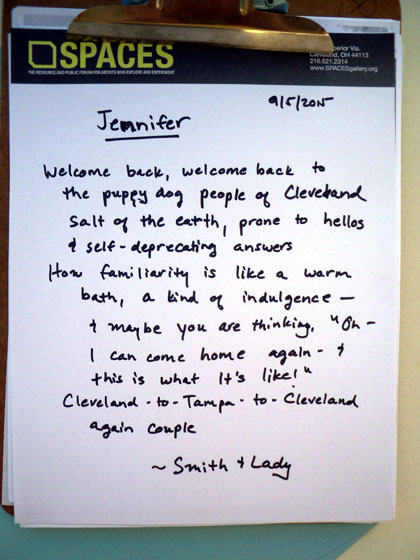 SPACES
THE RESOURCE AND PUBLIC FORUM FOR ARTISTS WHO EXPLORE AND EXPERIMENT
Superior Via.
Cleveland, OH 44113
216.621.2314
www.SPACESgallery.org
9/5/2015
Jennifer
Welcome back, welcome back to
the puppy dog people of Cleveland
Salt of the earth, prone to hellos
& self-deprecating answers
How familiarity is like a warm
bath, a kind of indulgence —
& maybe you are thinking, "Oh -
I can come home again - &
this is what it's like!"
Cleveland-to-Tampa-to-Cleveland
again couple
~ Smith & Lady